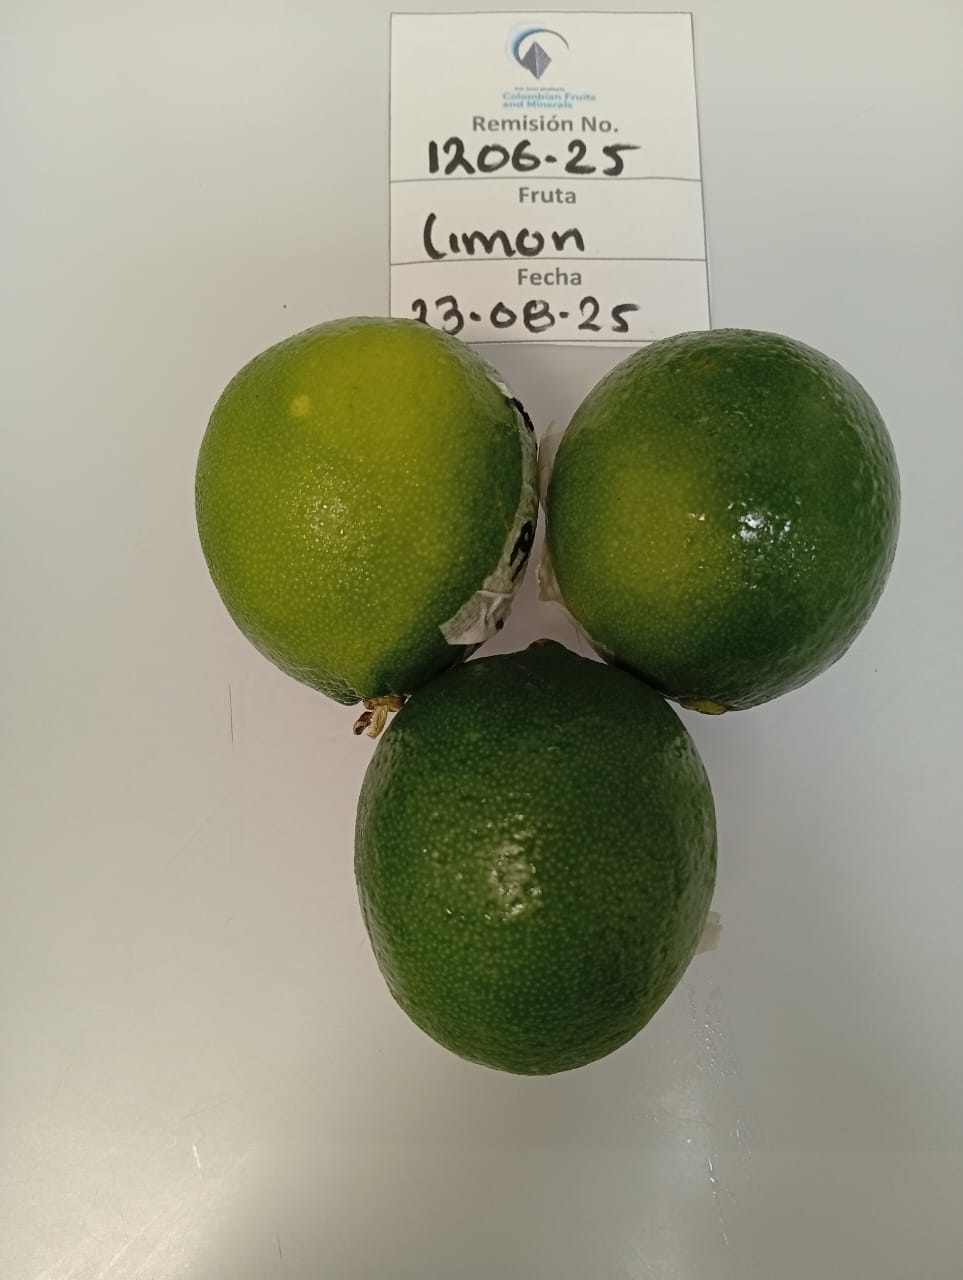 Colombian Fruits
and Minerals
Remisión No.
1206-25
Fruta
limon
Fecha
23-08-25